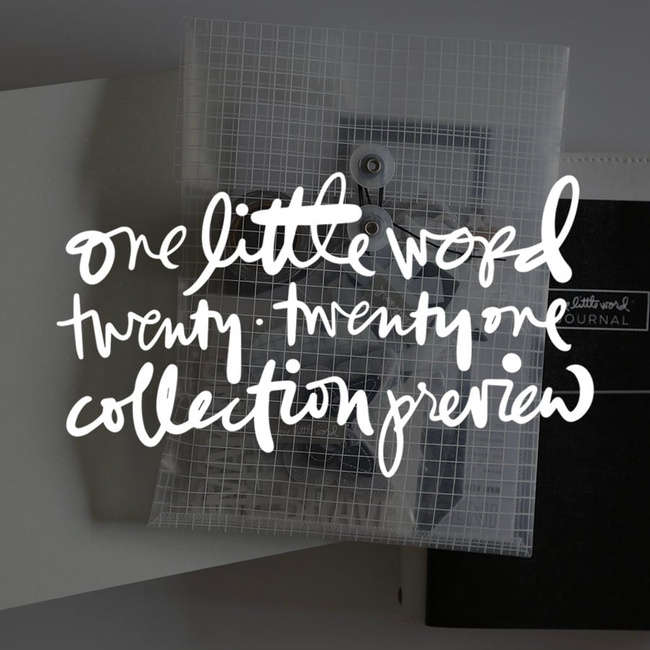 one little word
twenty · twenty one
collection preview
little word
JOURNAL